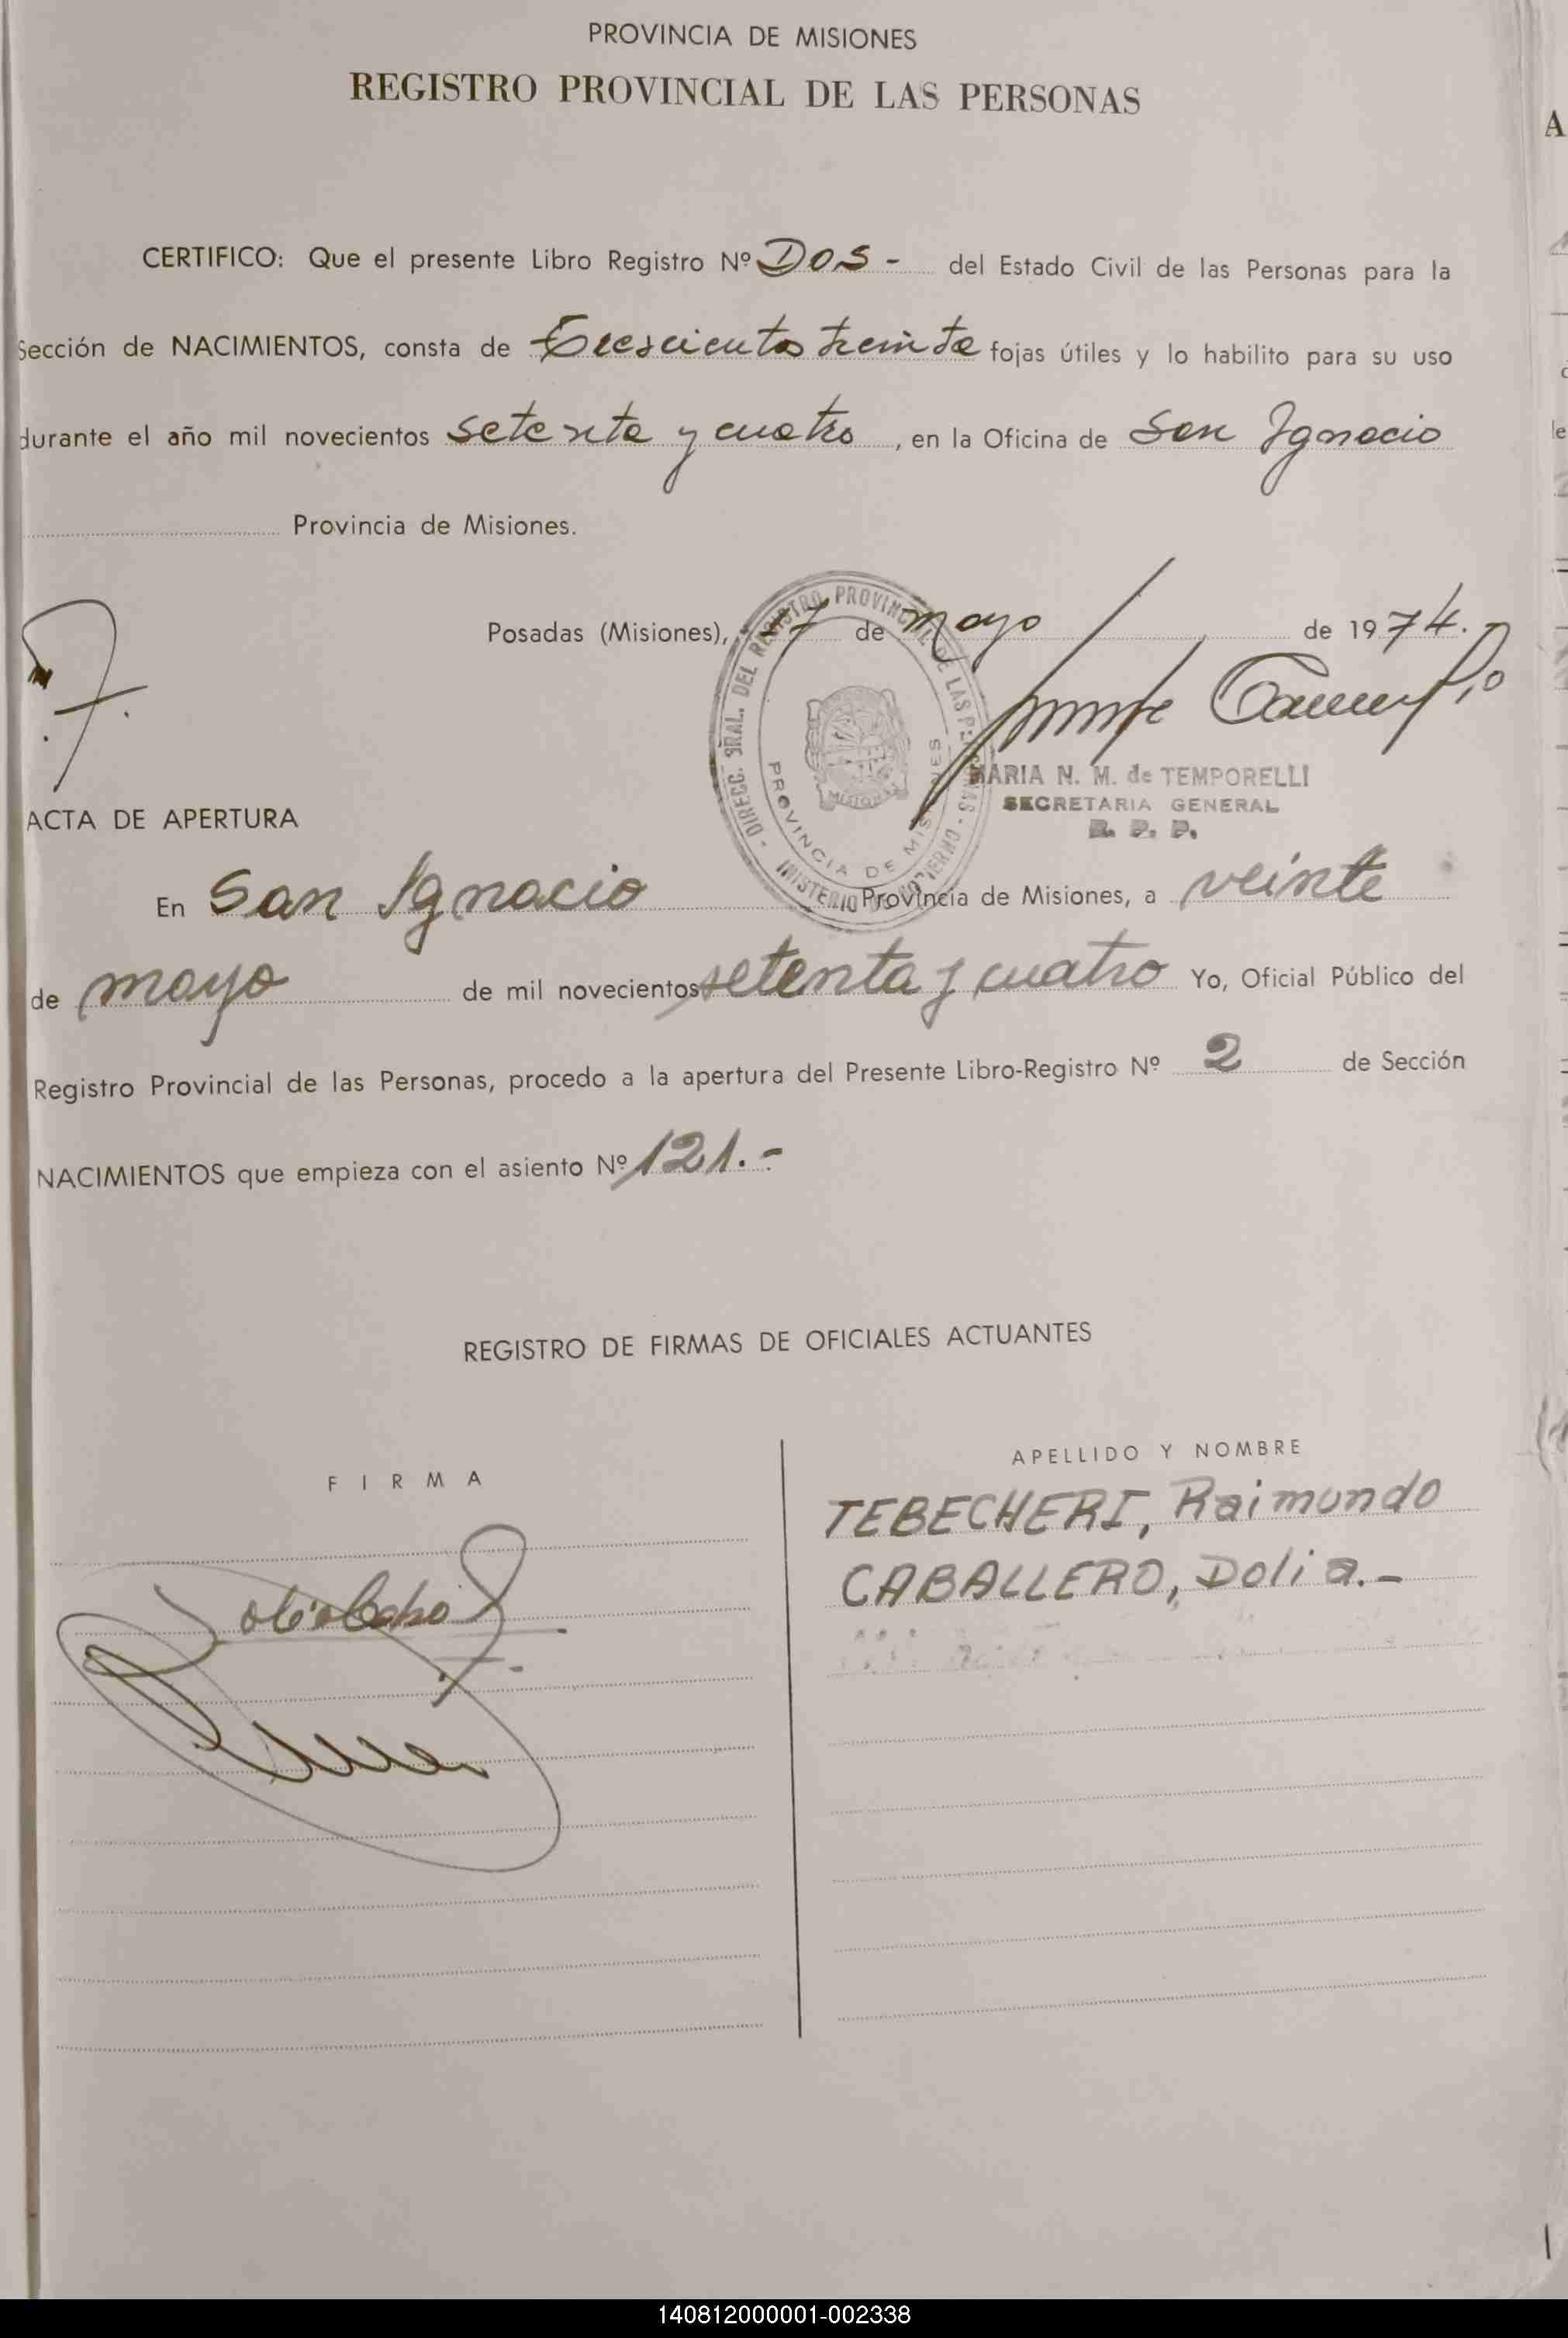 PROVINCIA DE MISIONES
REGISTRO PROVINCIAL DE LAS PERSONAS
A
CERTIFICO: Que el presente Libro Registro Nº Dos - del Estado Civil de las Personas para la
Sección de NACIMIENTOS, consta de Trescientos treinta fojas útiles y lo habilito para su uso
durante el año mil novecientos setenta y cuatro, en la Oficina de San Ignacio
Provincia de Misiones.
Posadas (Misiones), 7 de mayo de 1974.
DIRECC. GRAL. DEL REGISTRO PROVINCIAL DE LAS PERSONAS - MINISTERIO DE GOBIERNO -
PROVINCIA DE MISIONES
MISIONES
MARIA N. M. de TEMPORELLI
SECRETARIA GENERAL
R. P. P.
ACTA DE APERTURA
En San Ignacio Provincia de Misiones, a veinte
de mayo de mil novecientos setenta y cuatro Yo, Oficial Público del
Registro Provincial de las Personas, procedo a la apertura del Presente Libro-Registro Nº 2 de Sección
NACIMIENTOS que empieza con el asiento Nº 121.-
REGISTRO DE FIRMAS DE OFICIALES ACTUANTES
FIRMA
APELLIDO Y NOMBRE
TEBECHERI, Raimundo
CABALLERO, Dolia.-
140812000001-002338